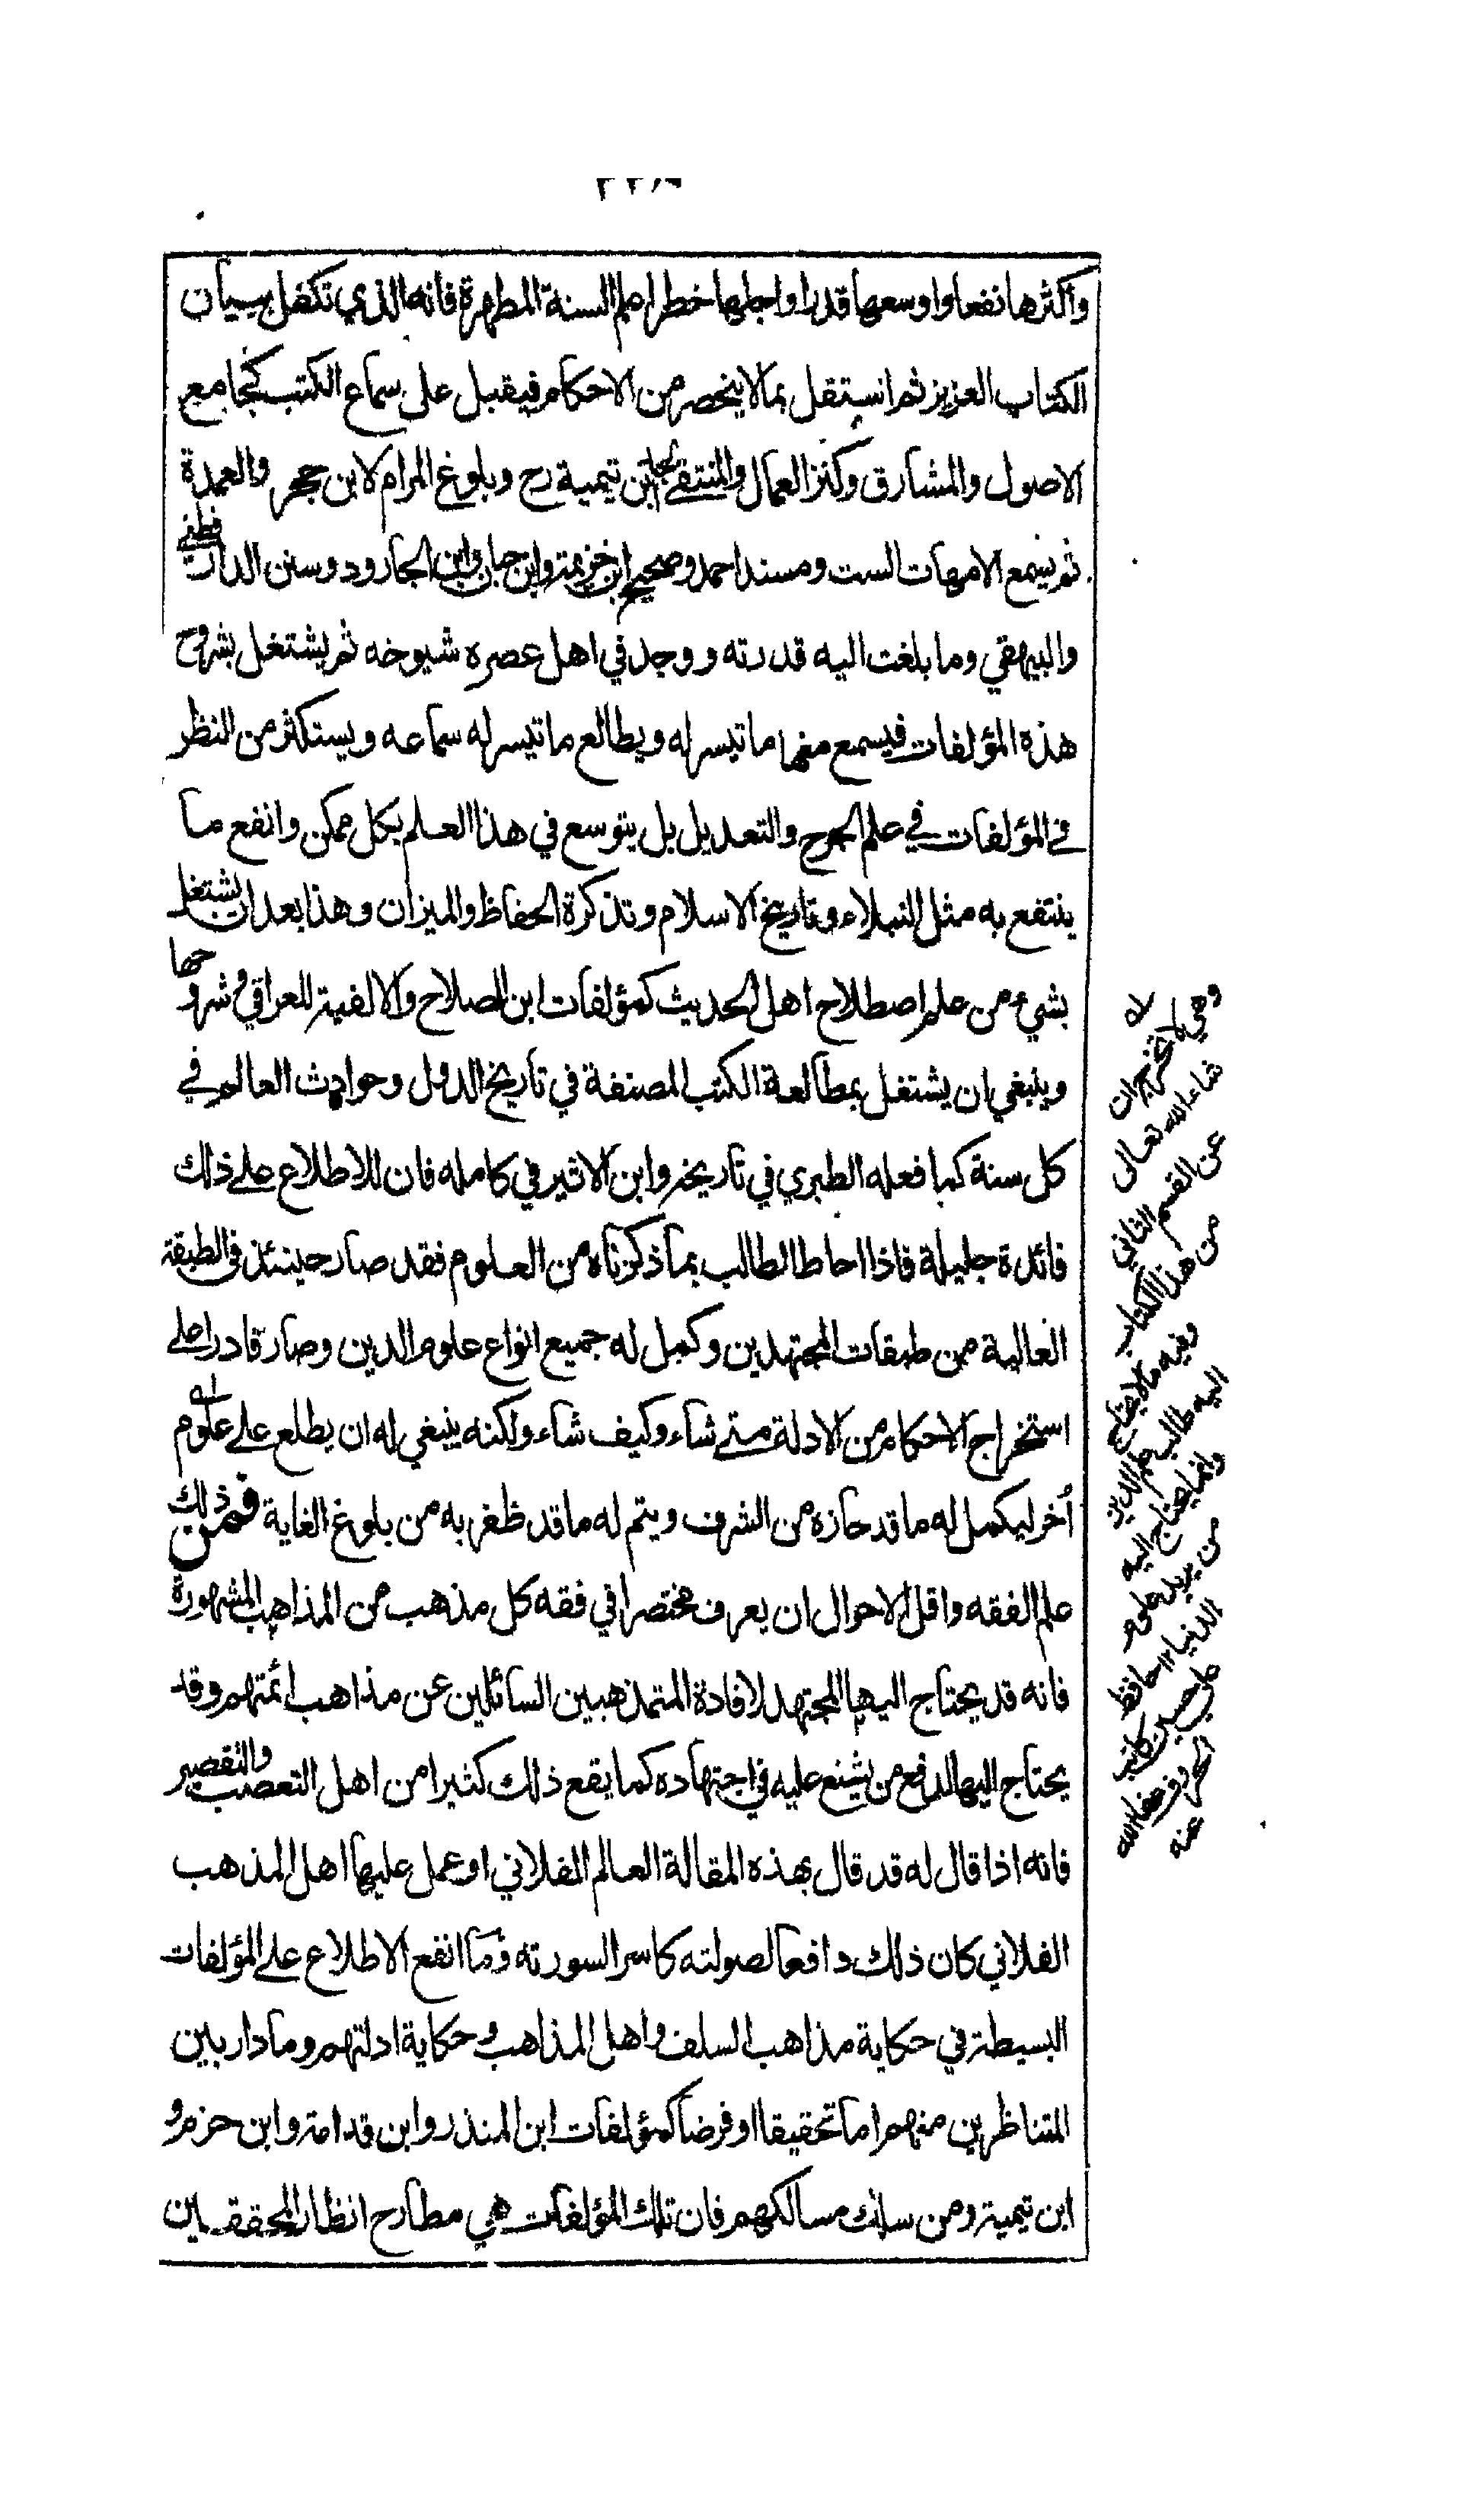 واكثرها نفعا واوسعها قدرا واجلها خطرا علم السنة المطهرة فانه الذي تكفل ببيان
الكتاب العزيز ثم استقل بما لا ينحصر من الاحكام فيقبل على سماع الكتب كجامع
الاصول والمشارق وكنز العمال والمنتقى لجد ابن تيمية رح وبلوغ المرام لابن حجر والعمدة
ثم يسمع الامهات الست ومسند احمد وصحيح ابن خزيمة وابن حبان وابن الجارود وسنن الدارقطني
والبيهقي وما بلغت اليه قدرته ووجد في اهل عصره شيوخه ثم يشتغل بشروح
هذه المؤلفات فيسمع منها ما تيسر له ويطالع ما تيسر له سماعه ويستكثر من النظر
في المؤلفات في علم الجرح والتعديل بل يتوسع في هذا العلم بكل ممكن وانفع ما
ينتفع به مثل النبلاء وتاريخ الاسلام وتذكرة الحفاظ والميزان وهذا بعد ان يشتغل
بشيء من علم اصطلاح اهل الحديث كمؤلفات ابن الصلاح والالفية للعراقي وشروحها
وينبغي ان يشتغل بمطالعة الكتب المصنفة في تاريخ الدول وحوادث العالم في
كل سنة كما فعله الطبري في تاريخه وابن الاثير في كامله فان للاطلاع على ذلك
فائدة جليلة فاذا احاط الطالب بما ذكرناه من العلوم فقد صار حينئذ في الطبقة
العالية من طبقات المجتهدين وكمل له جميع انواع علوم الدين وصار قادرا على
استخراج الاحكام من الادلة متى شاء وكيف شاء ولكنه ينبغي له ان يطلع على علوم له
أخر ليكمل له ما قد حازه من الشرف ويتم له ما قد ظفر به من بلوغ الغاية فمن ذلك
علم الفقه واقل الاحوال ان يعرف مختصرا في فقه كل مذهب من المذاهب المشهورة
فانه قد يحتاج اليها المجتهد لافادة المتمذهبين السائلين عن مذاهب ائمتهم وقد
يحتاج اليها لدفع من يشنع عليه في اجتهاده كما يقع ذلك كثيرا من اهل التعصب والتقصير
فانه اذا قال له قد قال بهذه المقالة العالم الفلاني او عمل عليها اهل المذهب
الفلاني كان ذلك دافعا لصولته كاسرا لسورته وما انفع الاطلاع على المؤلفات
البسيطة في حكاية مذاهب السلف واهل المذاهب وحكاية ادلتهم وما دار بين
المتناظرين منهم اما تحقيقا او فرضا كمؤلفات ابن المنذر وابن قدامة وابن حزم و
ابن تيمية ومن سلك مسالكهم فان تلك المؤلفات هي مطارح انظار المحققين
وهي لا تخرج ان
شاء الله تعالى
عن القسم الثاني
من هذا الكتاب
وفيه ما لا يحتاج
اليه طالب علم الدين
وانما يحتاج اليه
من يريد علوم
الدنيا ١٢ حافظ
علي حسين كاتب
عفا الله
عنه